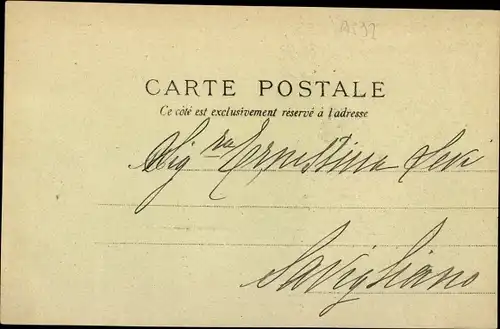 AS92
CARTE POSTALE
Ce côté est exclusivement réservé à l'adresse
Sig.ra Ernestina Levi
Savigliano